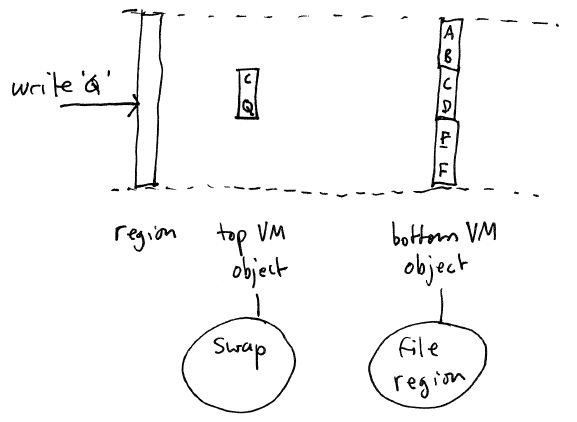 write 'Q'
C
Q
A
B
C
D
E
F
region
top VM
object
bottom VM
object
Swap
file
region